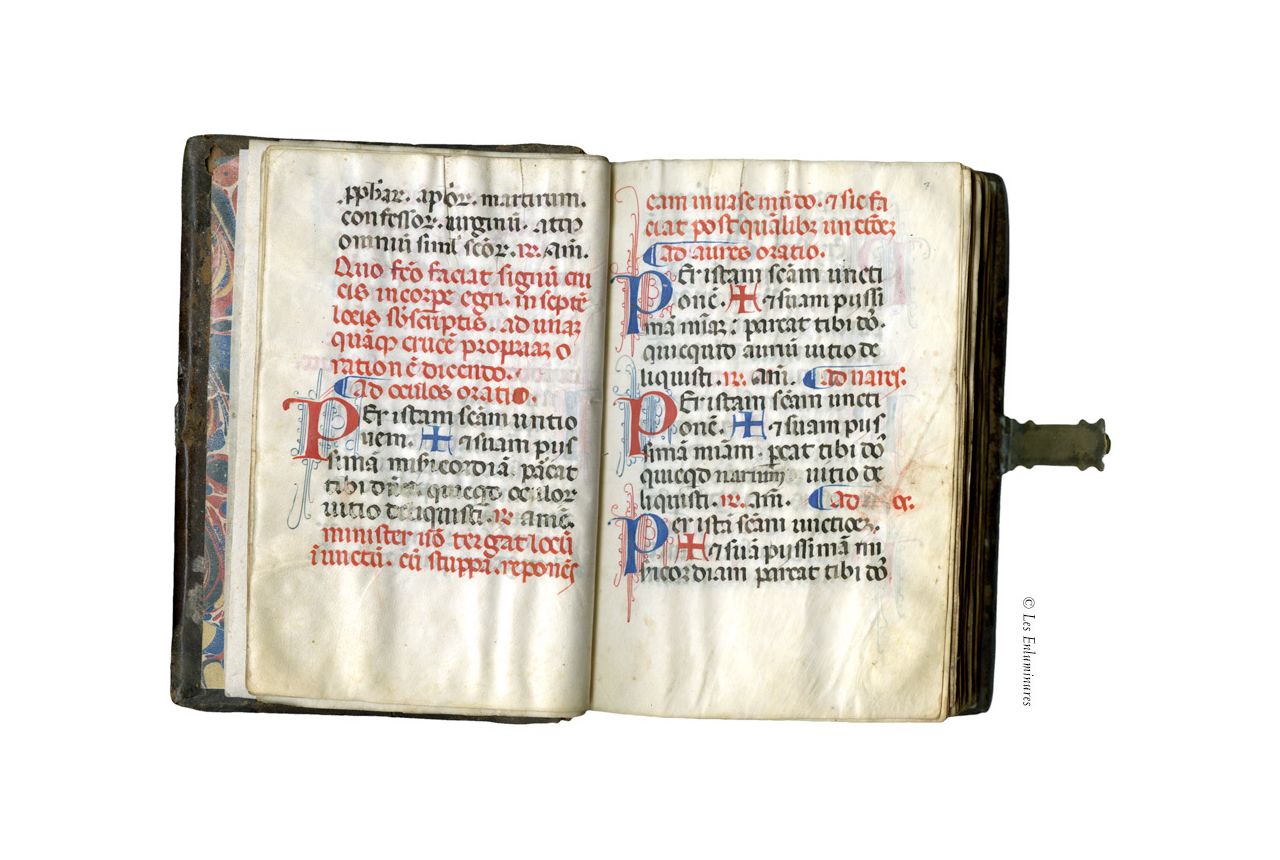 pph̄ar. ap̄lor. martirum.
confessor. uirginū. atq̄
omniū siml̄ sc̄or. ꝶ. am̄.
Quo fc̄o faciat signū cru
cis in corꝑe egri. in septē
locis subscriptis. ad unā
quāq̄ crucē propriam o
rationē dicendo.
ad oculos oratio.
Per istam sc̄am unctio
nem. ✠ ⁊ suam pijs
simā misericordiā. parcat
tibi dn̄s quicqd oculor
uitio deliquisti. ꝶ. amē.
minister uō tergat locū
īunctū. cū stuppa. reponēs
eam in uase mūdo. ⁊ sic fa
ciat post quālibꝫ unctionē
ad aures oratio.
Per istam sc̄am uncti
onē. ✠ ⁊ suam pijssi
mā mīam. parcat tibi dō.
quicquid auriū uitio de
liquisti. ꝶ. am̄. ad nares.
Per istam sc̄am uncti
onē. ✠ ⁊ suam pijs
simā mīam. pcat tibi dō
quicqd narium uitio de
liquisti. ꝶ. am̄. ad
Per istā sc̄am unctioēꝫ.
✠ ⁊ suā pijssimā mi
sericordiam parcat tibi dō
© Les Enluminures